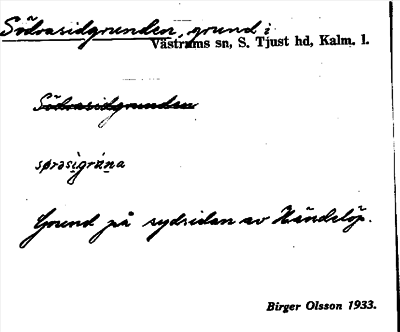 Södrasidgrunden, grund i
Västrums sn, S. Tjust hd, Kalm. l.
Södrasidgrunden
Grund på sydsidan av Händelöp.
Birger Olsson 1933.